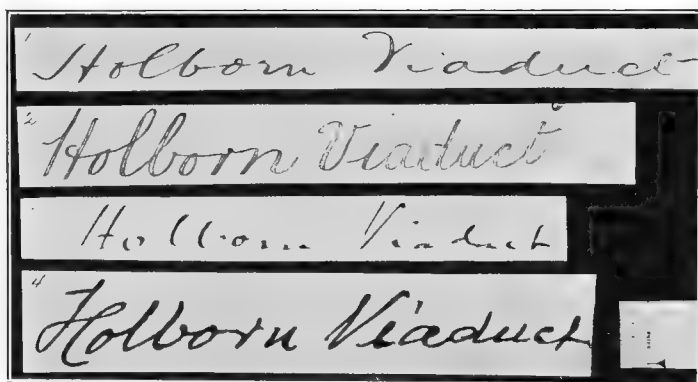 1 Holborn Viaduct
2 Holborn Viaduct
Holborn Viaduct
4 Holborn Viaduct